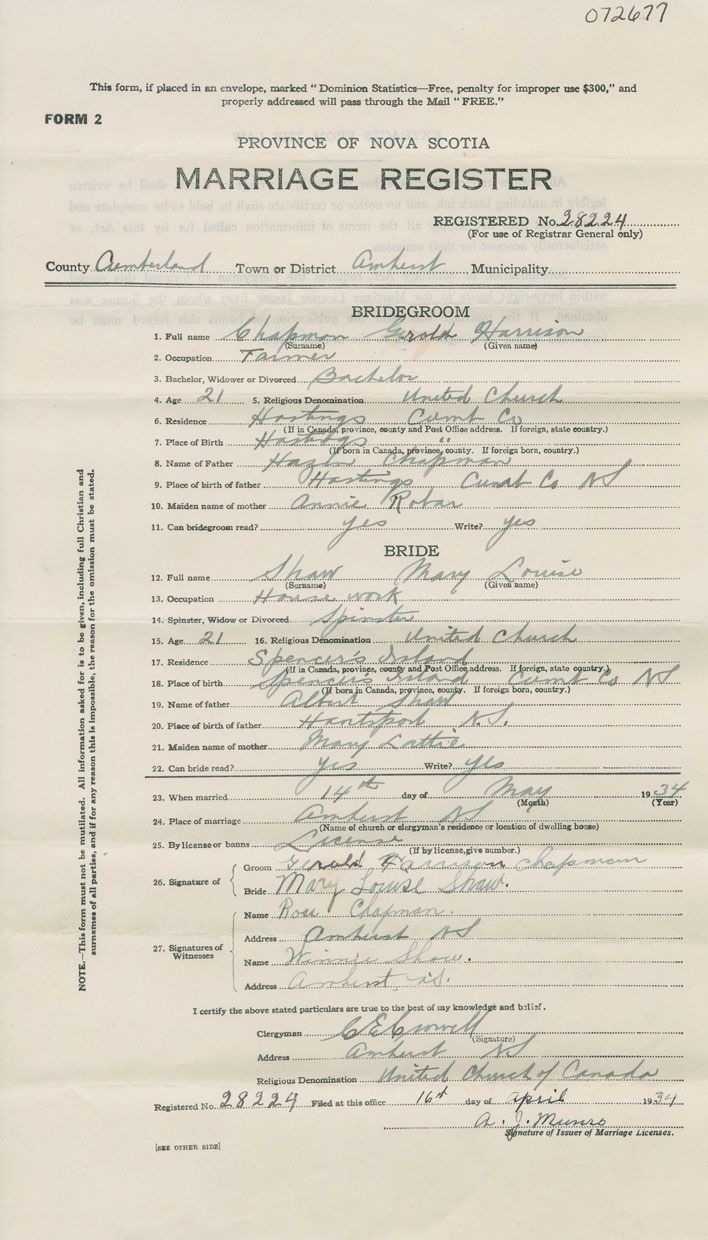 072677
This form, if placed in an envelope, marked "Dominion Statistics—Free, penalty for improper use $300," and
properly addressed will pass through the Mail "FREE."
FORM 2
PROVINCE OF NOVA SCOTIA
MARRIAGE REGISTER
REGISTERED No. 28224
(For use of Registrar General only)
County Cumberland Town or District Amherst Municipality
BRIDEGROOM
1. Full name Chapman Gerold Harrison
(Surname) (Given name)
2. Occupation Farmer
3. Bachelor, Widower or Divorced Bachelor
4. Age 21 5. Religious Denomination United Church
6. Residence Hastings Cumb Co
(If in Canada, province, county and Post Office address. If foreign, state country.)
7. Place of Birth Hastings "
(If born in Canada, province, county. If foreign born, country.)
8. Name of Father Chapman
9. Place of birth of father Hastings Cumb Co NS
10. Maiden name of mother Annie Robar
11. Can bridegroom read? yes Write? yes
BRIDE
12. Full name Shaw Mary Louise
(Surname) (Given name)
13. Occupation House work
14. Spinster, Widow or Divorced Spinster
15. Age 21 16. Religious Denomination United Church
17. Residence Spencer's Island
(If in Canada, province, county and Post Office address. If foreign, state country.)
18. Place of birth Spencer's Island Cumb Co NS
(If born in Canada, province, county. If foreign born, country.)
19. Name of father Albert Shaw
20. Place of birth of father Hantsport N.S.
21. Maiden name of mother Mary Lattie
22. Can bride read? yes Write? yes
23. When married 14th day of May 1934
(Month) (Year)
24. Place of marriage Amherst NS
(Name of church or clergyman's residence or location of dwelling house)
25. By license or banns License
(If by license, give number.)
26. Signature of
Groom Gerold Harrison Chapman
Bride Mary Louise Shaw.
27. Signatures of Witnesses
Name Ross Chapman.
Address Amherst NS
Name Winnie Shaw.
Address Amherst, N.S.
I certify the above stated particulars are true to the best of my knowledge and belief.
Clergyman C E Crowell
(Signature)
Address Amherst NS
Religious Denomination United Church of Canada
Registered No. 28224 Filed at this office 16th day of April 1934
A. J. Munro
Signature of Issuer of Marriage Licenses.
[SEE OTHER SIDE]
NOTE.—This form must not be mutilated. All information asked for is to be given, including full Christian and
surnames of all parties, and if for any reason this is impossible, the reason for the omission must be stated.